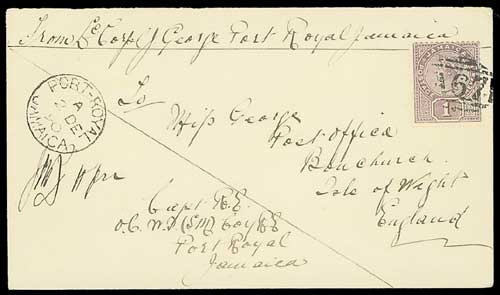 From Lce Corp J George Port Royal Jamaica
PORT-ROYAL
A
DE
90
JAMAICA
JAMAICA
1D
To
Miss George
Post-Office
Bonchurch
Isle of Wight
England
Capt R.E.
O.C. W.I (S.M) Coy RE
Port Royal
Jamaica